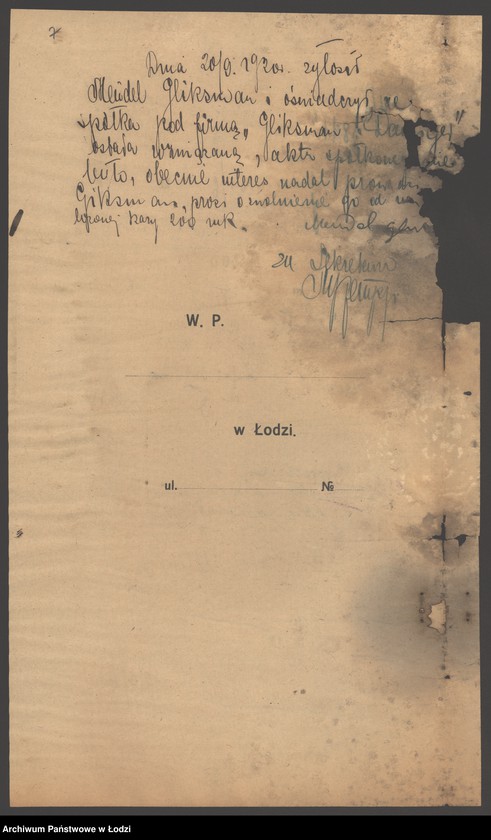 7
Dnia 20/9. 1920r. zgłosił
Mendel Gliksman i oświadczył że
spółka pod firmą „Gliksman
została wymazaną, aktu spółkowego nie
było, obecnie interes nadal prowadzi
Gliksman, prosi o zwolnienie go od na
łożonej kary 200 mk. Mendel Glik
za Sekretarz
W. P.
w Łodzi.
ul. №
Archiwum Państwowe w Łodzi